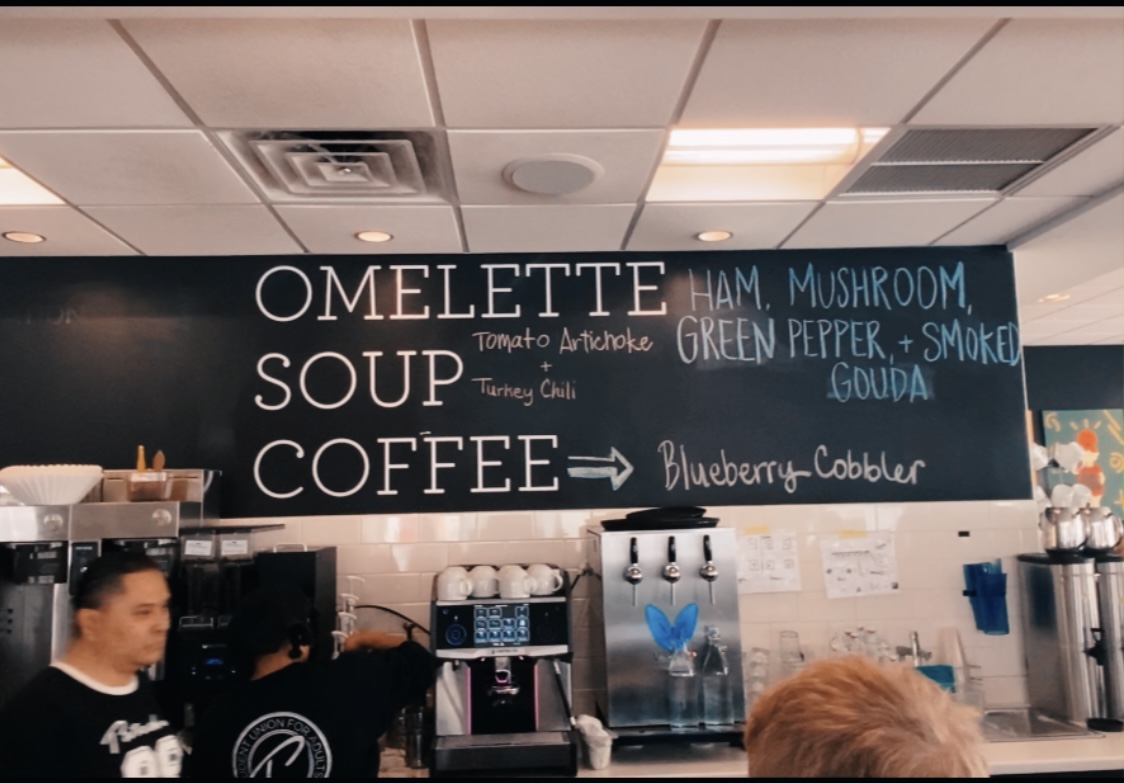 OMELETTE
HAM, MUSHROOM,
GREEN PEPPER, + SMOKED
GOUDA
SOUP
Tomato Artichoke
+
Turkey Chili
COFFEE → Blueberry Cobbler
UNION FOR ADULTS